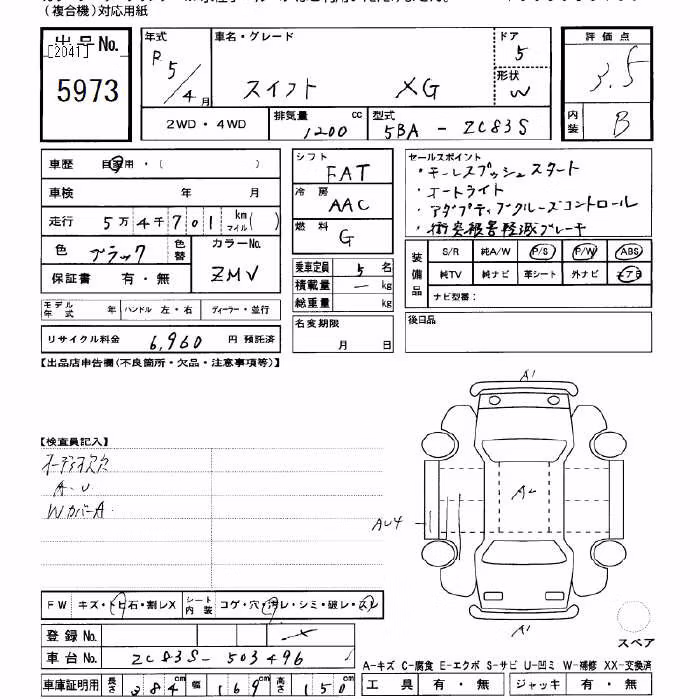 (複合機)対応用紙
出品No.
[2041]
5973
年式
R 5/4月
車名・グレード
スイフト XG
ドア
5
形状
W
評価点
3.5
内装
B
2WD・4WD
排気量 1200 cc
型式 5BA - ZC83S
車歴 自家用・( )
車検 年 月
走行 5万4千701 km マイル( )
色 ブラック 色替
カラーNo. ZMV
保証書 有・無
モデル年式 年 ハンドル 左・右 ディーラー・並行
リサイクル料金 6,960 円 預託済
シフト FAT
冷房 AAC
燃料 G
乗車定員 5 名
積載量 — kg
総重量 kg
名変期限
月 日
セールスポイント
・キーレスプッシュスタート
・オートライト
・アダプティブクルーズコントロール
・衝突被害軽減ブレーキ
装備品
S/R 純A/W P/S P/W ABS
純TV 純ナビ 革シート 外ナビ エアB
ナビ型番:
後日品
【出品店申告欄(不良箇所・欠品・注意事項等)】
【検査員記入】
オーディオ欠
A・U
WカバーA
A1
A2
AU4
A1
スペア
FW キズ・トビ石・割レX
シート内装 コゲ・穴・汚レ・シミ・破レ・スレ
登録No.
車台No. ZC83S-503496
A-キズ C-腐食 E-エクボ S-サビ U-凹ミ W-補修 XX-交換済
車庫証明用 長さ 384cm 幅 169cm 高さ 150cm
工具 有・無 ジャッキ 有・無